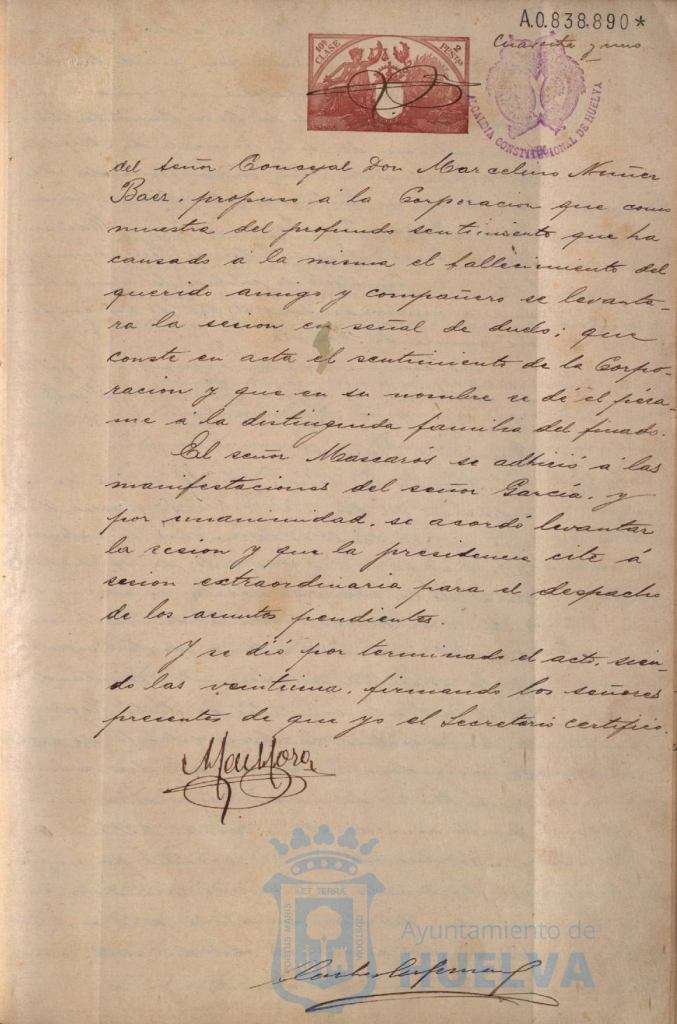 A.0.838.890*
Cuarenta y uno
10ª CLASE
2 PESTAS
ALCALDIA CONSTITUCIONAL DE HUELVA
del señor Concejal Don Marcelino Nuñez
Baez, propuso á la Corporacion que como
muestra del profundo sentimiento que ha
causado á la misma el fallecimiento del
querido amigo y compañero se levanta-
ra la sesion en señal de duelo; que
conste en acta el sentimiento de la Corpo-
racion y que en su nombre se dé el pésa-
me á la distinguida familia del finado.
El señor Mascarós se adhirió á las
manifestaciones del señor García, y
por unanimidad, se acordó levantar
la sesion y que la presidencia cite á
sesion extraordinaria para el despacho
de los asuntos pendientes.
Y se dió por terminado el acto, sien-
do las veintiuna, firmando los señores
presentes de que yo el Secretario certifico.
PORTUS MARIS ET TERRÆ CUSTODIA
Ayuntamiento de
HUELVA